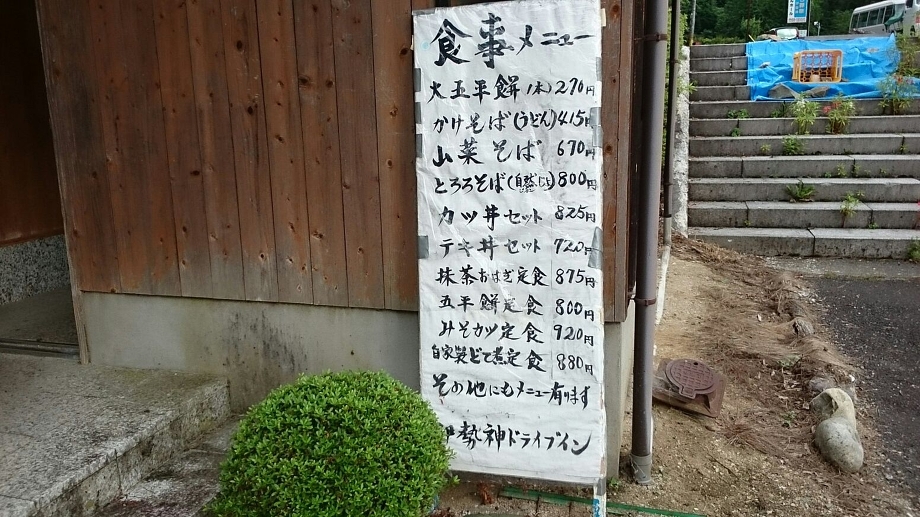 食事メニュー
大五平餅(1本)270円
かけそば(うどん)415円
山菜そば 670円
とろろそば(自然 )800円
カツ丼セット 825円
テキ丼セット 920円
抹茶おはぎ定食 875円
五平餅定食 800円
みそカツ定食 920円
自家製どて煮定食 880円
その他にもメニュー有ります
伊勢神ドライブイン